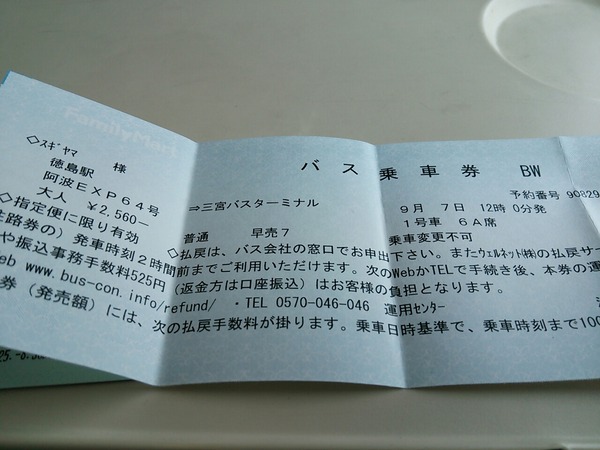 FamilyMart
バス乗車券 BW
◇スギヤマ 様
予約番号 9082
徳島駅 ⇒三宮バスターミナル 9月 7日 12時 0分発
阿波EXP64号 1号車 6A席
大人 ¥2,560− 普通 早売7 乗車変更不可
◇指定便に限り有効 ◇払戻は、バス会社の窓口でお申出下さい。またウェルネット㈱の払戻サー
路券の）発車時刻２時間前までご利用いただけます。次のWebかTELで手続き後、本券の運
や振込事務手数料525円（返金方は口座振込）はお客様の負担となります。
eb www.bus-con.info/refund/ ・TEL 0570-046-046 運用センター
券（発売額）には、次の払戻手数料が掛ります。乗車日時基準で、乗車時刻まで100